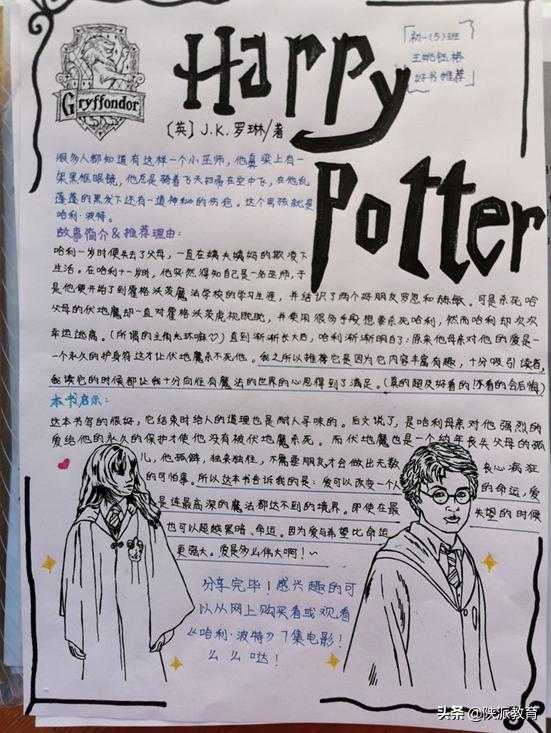 Gryffondor
Harry
Potter
初一(5)班
好书推荐
[英]J.K.罗琳/著
很多人都知道有这样一个小巫师,他鼻梁上有一
架黑框眼镜,他总是骑着飞天扫帚在空中飞,在他乱
蓬蓬的黑发下还有一道神秘的伤疤。这个男孩就是
哈利·波特。
故事简介&推荐理由:
哈利一岁时便失去了父母,一直在姨夫姨妈的欺凌下
生活。在哈利十一岁时,他突然得知自己是一名巫师,于
是他便开始了到霍格沃茨魔法学校的学习生涯,并结识了两个好朋友罗恩和赫敏。可是杀死哈利
父母的伏地魔却一直对霍格沃茨虎视眈眈,并使用很多手段想要杀死哈利,然而哈利却次次
幸运逃离。(所谓的主角光环嘛♡)直到渐渐长大后,哈利渐渐明白了:原来他母亲对他的爱是一
一个永久的护身符这才让伏地魔杀不死他。我之所以推荐它是因为它内容丰富有趣,十分吸引读者,
我读它的时候都让我十分向往有魔法的世界的心思得到了满足。(真的超级好看的!不看的会后悔)
本书启示:
这本书写的很好,它结束时给人的道理也是耐人寻味的。后文说了,是哈利母亲对他强烈的
爱给他的永久的保护才使他没有被伏地魔杀死。而伏地魔也是一个幼年丧失父母的孤
儿,他孤僻,独来独往,不需要朋友才会做出无数丧心病狂
的可怕事。所以这本书告诉我的是:爱可以改变一个人的命运,爱
是连最高深的魔法都达不到的境界。即使在最失望的时候
也可以超越黑暗、命运。因为爱与希望比命运
更强大。爱是多么伟大啊!~
分享完毕!感兴趣的可
以从网上购买看或观看
《哈利·波特》7集电影!
么么哒!
头条@陕派教育